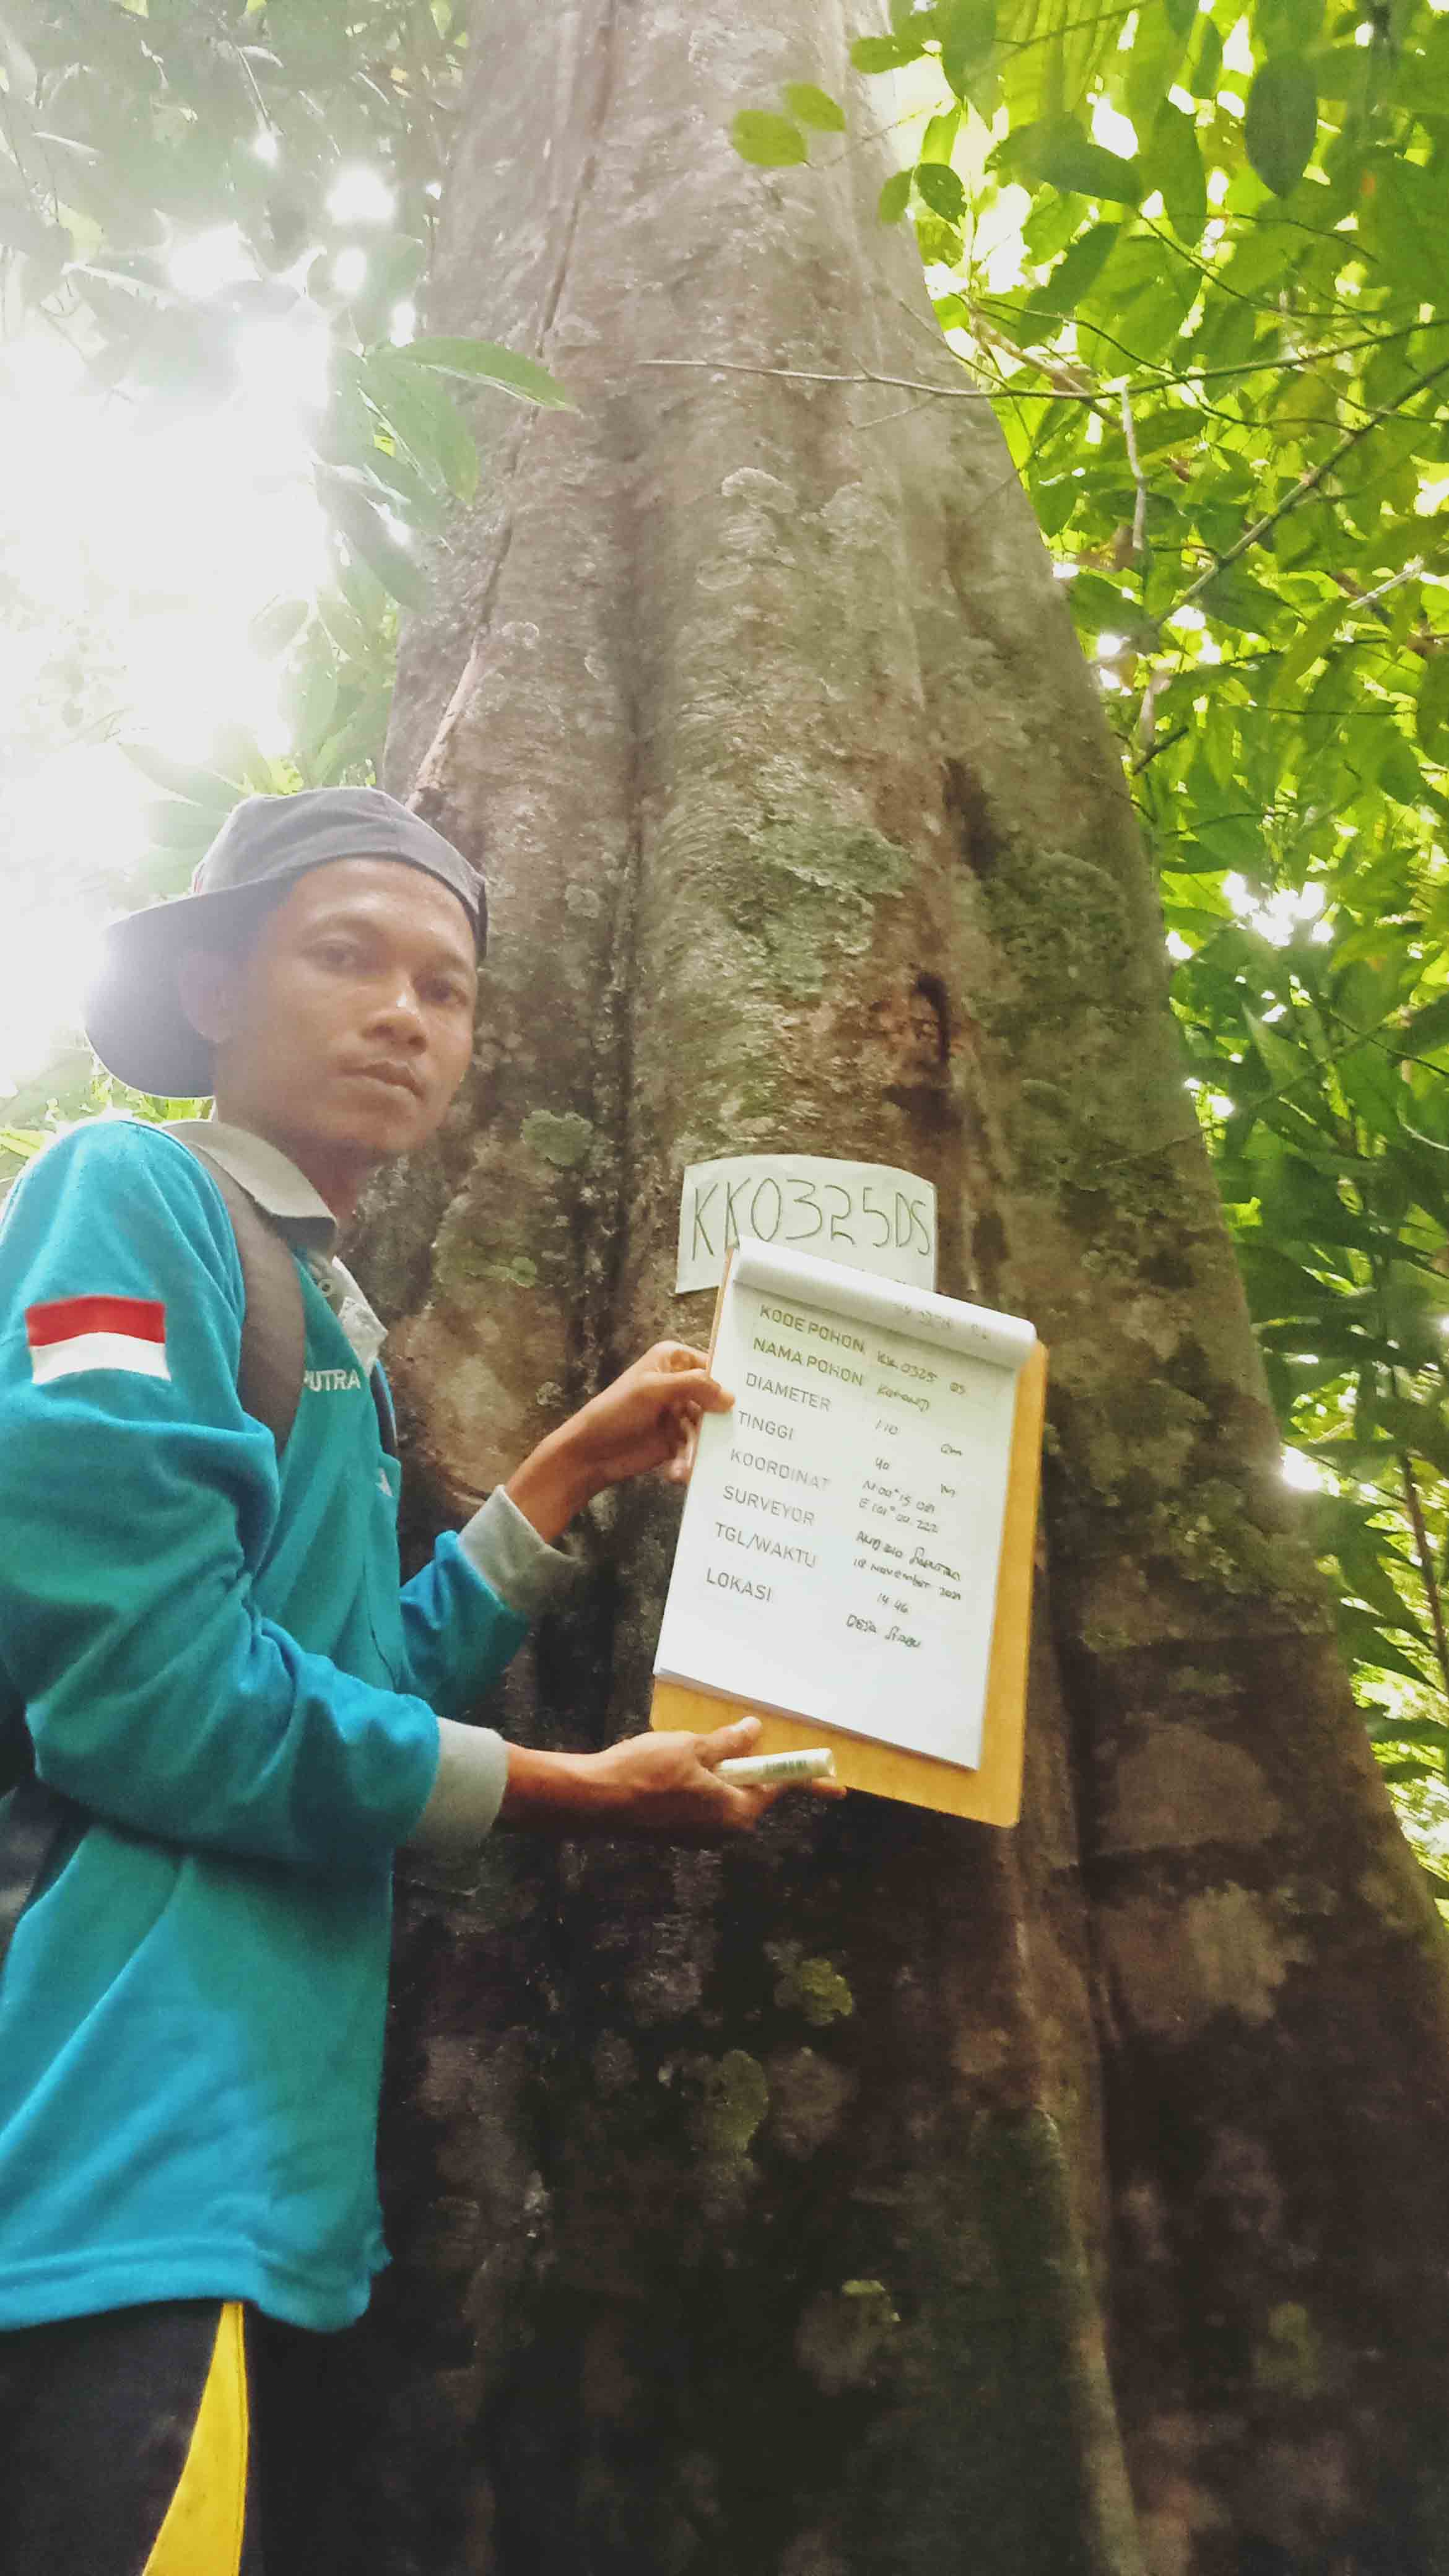 KK0325DS
KODE POHON KK 0325 DS
NAMA POHON
DIAMETER 110 cm
TINGGI 40 m
KOORDINAT N 00° 15
E 101° 00.222
SURVEYOR
TGL/WAKTU november 2021
14.46
LOKASI DESA
PUTRA